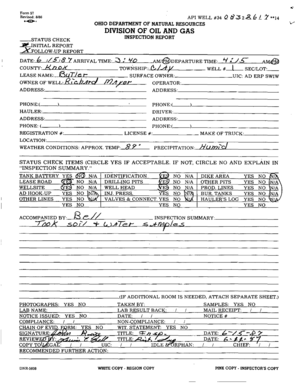 Form 21
Revised 4/86
API WELL #34 08312617 **14
OHIO DEPARTMENT OF NATURAL RESOURCES
DIVISION OF OIL AND GAS
INSPECTION REPORT
STATUS CHECK
INITIAL REPORT
FOLLOW-UP REPORT
DATE: 6/15/87 ARRIVAL TIME: 3:40 AM/PM DEPARTURE TIME: 4:15 AM/PM
COUNTY: Knox TOWNSHIP: Clay WELL #: 1 SEC/LOT:
LEASE NAME: Butler SURFACE OWNER: UIC AD ERP SWIW
OWNER OF WELL: Richard Mayer OPERATOR:
ADDRESS: ADDRESS:
PHONE: ( ) PHONE: ( )
HAULER: DRIVER:
ADDRESS: ADDRESS:
PHONE: ( ) PHONE: ( )
REGISTRATION #: LICENSE #: MAKE OF TRUCK:
LOCATION:
WEATHER CONDITIONS: APPROX. TEMP. 89° PRECIPITATION Humid
STATUS CHECK ITEMS (CIRCLE YES IF ACCEPTABLE. IF NOT, CIRCLE NO AND EXPLAIN IN
"INSPECTION SUMMARY."
TANK BATTERY YES NO N/A IDENTIFICATION YES NO N/A DIKE AREA YES NO N/A
LEASE ROAD YES NO N/A DRILLING PITS YES NO N/A OTHER PITS YES NO N/A
WELLSITE YES NO N/A WELL HEAD YES NO N/A PROD. LINES YES NO N/A
AD HOOK-UP YES NO N/A INJ. PRESS. YES NO N/A BUR. TANKS YES NO N/A
OTHER LINES YES NO N/A VALVES & CONNECT. YES NO N/A HAULER'S LOG YES NO N/A
YES NO YES NO YES NO
ACCOMPANIED BY: Bell INSPECTION SUMMARY
Took soil & water samples
(IF ADDITIONAL ROOM IS NEEDED, ATTACH SEPARATE SHEET.)
PHOTOGRAPHS: YES NO TAKEN BY: SAMPLES: YES NO
LAB NAME: LAB RESULT BACK: / / MAIL RECEIPT: / /
NOTICE ISSUED: YES NO DATE: / / NOTICE #
COMPLIANCE: / / NON-COMPLIANCE: / /
CHAIN OF EVID. FORM: YES NO WIT. STATEMENT: YES NO
SIGNATURE: TITLE: Insp. DATE: 6-15-87
REVIEWED BY: TITLE: DATE:
COPY TO LEGAL: / / UIC: / / IDLE & ORPHAN: / / CHIEF: / /
RECOMMENDED FURTHER ACTION:
WHITE COPY - REGION COPY PINK COPY - INSPECTOR'S COPY